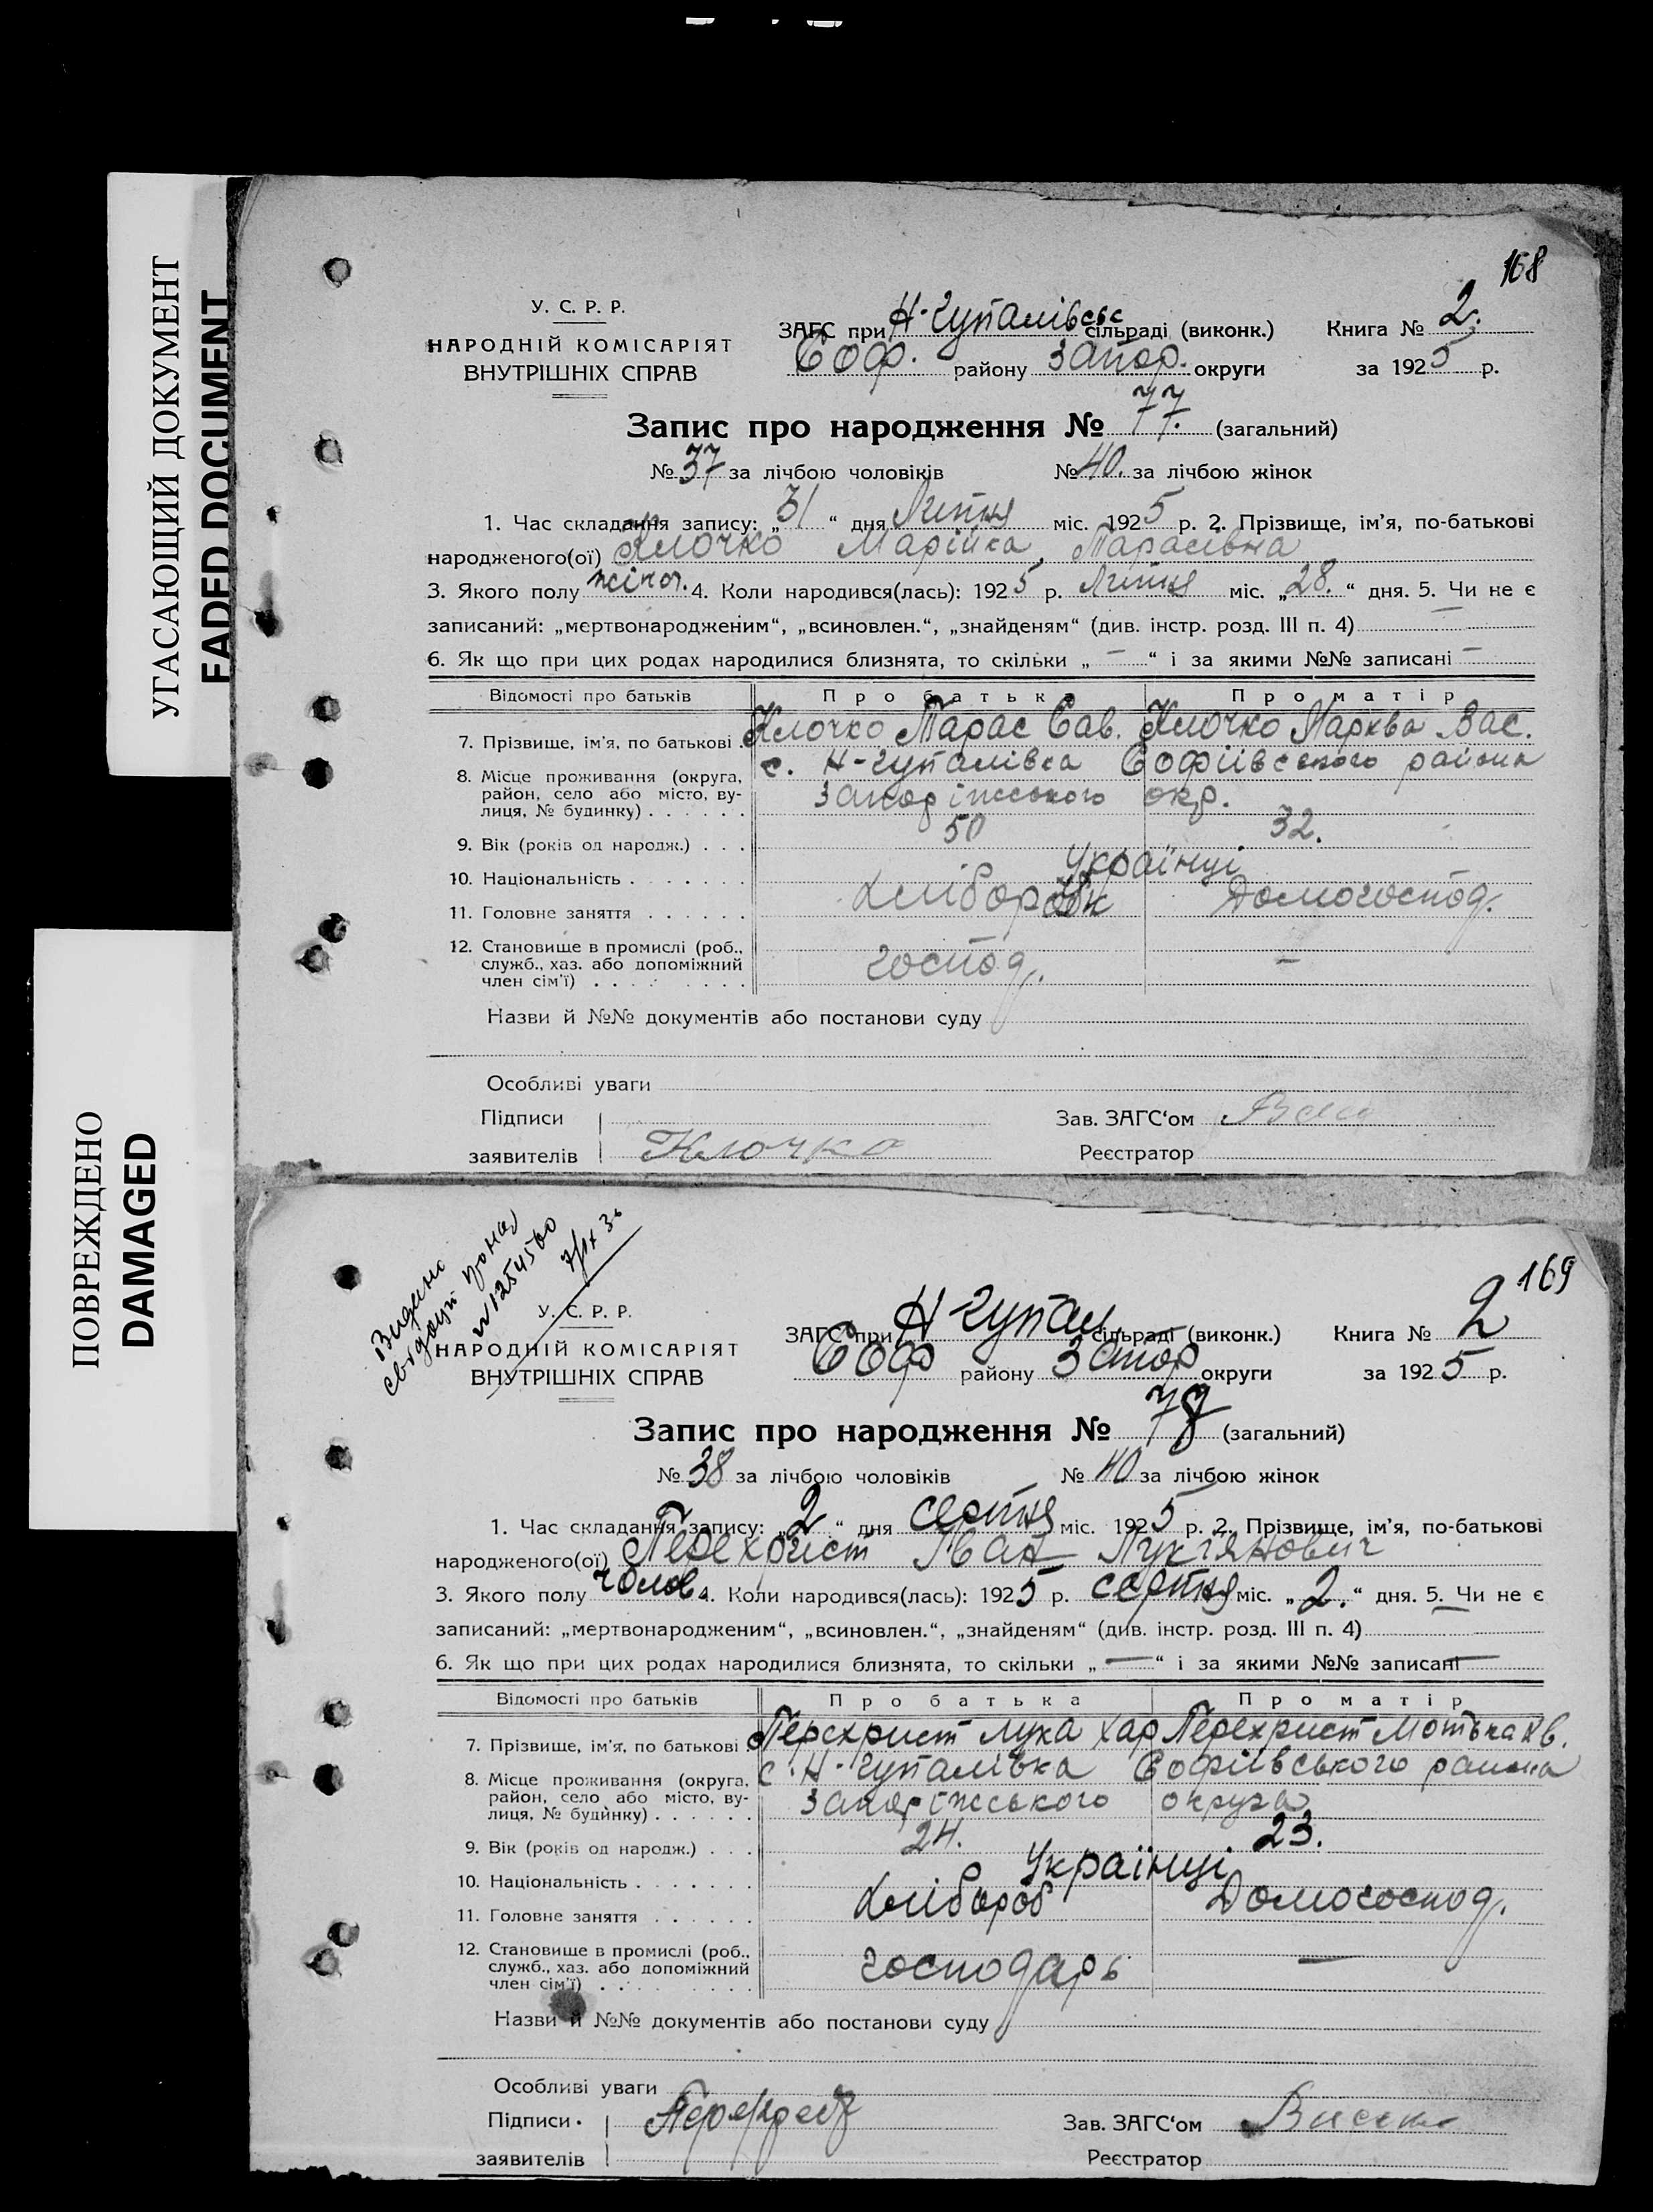 УГАСАЮЩИЙ ДОКУМЕНТ
FADED DOCUMENT
ПОВРЕЖДЕНО
DAMAGED
168
У. С. Р. Р.
НАРОДНІЙ КОМІСАРІЯТ
ВНУТРІШНІХ СПРАВ
ЗАГС при Н-Гупалівськ сільраді (виконк.) Книга № 2.
Соф. району Запор. округи за 1925 р.
Запис про народження № 77. (загальний)
№ 37 за лічбою чоловіків № 40. за лічбою жінок
1. Час складання запису: „31“ дня Липня міс. 1925 р. 2. Прізвище, ім’я, по-батькові
народженого(ої) Клочко Марійка Тарасівна
3. Якого полу жіноч. 4. Коли народився(лась): 1925 р. Липня міс. „28.“ дня. 5. Чи не є
записаний: „мертвонародженим“, „всиновлен.“, „знайденям“ (див. інстр. розд. III п. 4) —
6. Як що при цих родах народилися близнята, то скільки „ — “ і за якими №№ записані —
Відомості про батьків Про батька Про матір
7. Прізвище, ім’я, по батькові . Клочко Тарас Сав. Клочко Марква Вас.
8. Місце проживання (округа, с. Н-Гупалівка Софіївського района
район, село або місто, ву- Запоріжського окр.
лиця, № будинку) . . . . . .
9. Вік (років од народж.) . . . 50 32.
10. Національність . . . . . . . Українці
11. Головне заняття . . . . . . Хлібороб Домогоспод.
12. Становище в промислі (роб.,
служб., хаз. або допоміжний Господ. —
член сім’ї) . . . . . . . . .
Назви й №№ документів або постанови суду
Особливі уваги
Підписи Зав. ЗАГС‘ом
заявителів Клочко Реєстратор
Видано
169
У. С. Р. Р.
НАРОДНІЙ КОМІСАРІЯТ
ВНУТРІШНІХ СПРАВ
ЗАГС при Н Гупал сільраді (виконк.) Книга № 2
Соф району Запор округи за 1925 р.
Запис про народження № 78 (загальний)
№ 38 за лічбою чоловіків № 40 за лічбою жінок
1. Час складання запису: „2“ дня серпня міс. 1925 р. 2. Прізвище, ім’я, по-батькові
народженого(ої) Перехрист Іван Лук’янович
3. Якого полу чолов. 4. Коли народився(лась): 1925 р. серпня міс. „2.“ дня. 5. Чи не є
записаний: „мертвонародженим“, „всиновлен.“, „знайденям“ (див. інстр. розд. III п. 4) —
6. Як що при цих родах народилися близнята, то скільки „ — “ і за якими №№ записані —
Відомості про батьків Про батька Про матір
7. Прізвище, ім’я, по батькові . Перехрист Лука Хар Перехрист Мотька
8. Місце проживання (округа, с. Н-Гупалівка Софіївського района
район, село або місто, ву- Запоріжського округа
лиця, № будинку) . . . . . .
9. Вік (років од народж.) . . . 24. 23.
10. Національність . . . . . . . Українці
11. Головне заняття . . . . . . Хлібороб Домогоспод.
12. Становище в промислі (роб.,
служб., хаз. або допоміжний господарь —
член сім’ї) . . . . . . . . .
Назви й №№ документів або постанови суду
Особливі уваги
Підписи Зав. ЗАГС‘ом
заявителів Реєстратор